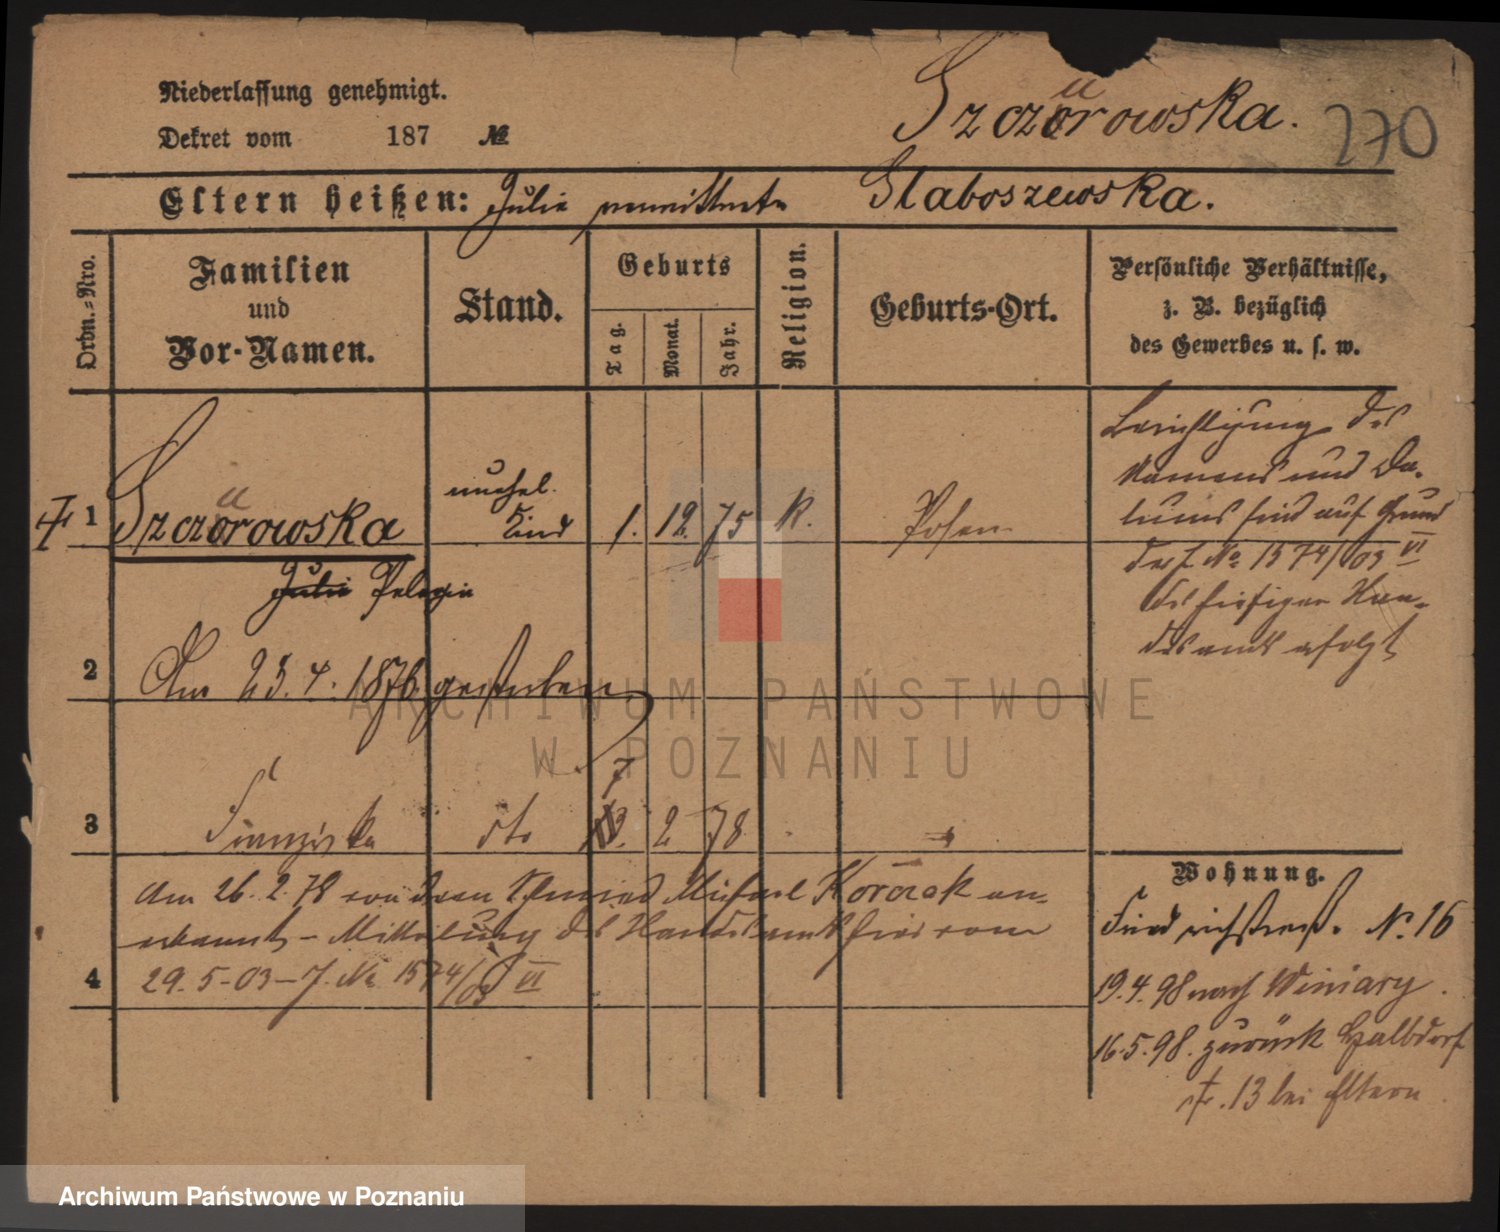 Niederlassung genehmigt.
Dekret vom 187 №
Szczurowska.
270
Eltern heißen: Julie verwittwete Slaboszewska.
Ordn.=Nro.
Familien
und
Vor-Namen.
Stand.
Geburts
Tag.
Monat.
Jahr.
Religion.
Geburts-Ort.
Persönliche Verhältnisse,
z. B. bezüglich
des Gewerbes u. s. w.
1 Szczurowska unehel. Kind 1. 12. 75 k. Posen
Julie Pelagia
2 Am 25.4.1876 gestorben
3 Franziska dto 7 2 78
Am 26.2.78 von dem Schmied Michael Korczak an=
erkannt – Mitteilung des Standesamts hier vom
4 29.5-03 – J. No 1574/03 VI
Berichtigung des
Namens und Da=
tums sind auf Grund
der J. No 1574/03 VI
des hiesigen Stan=
desamts erfolgt
Wohnung.
Friedrichstraß. No. 16
19.4.98 nach Winiary.
16.5.98. zurück Halbdorf
str. 13 bei Eltern
ARCHIWUM PAŃSTWOWE
W POZNANIU
Archiwum Państwowe w Poznaniu